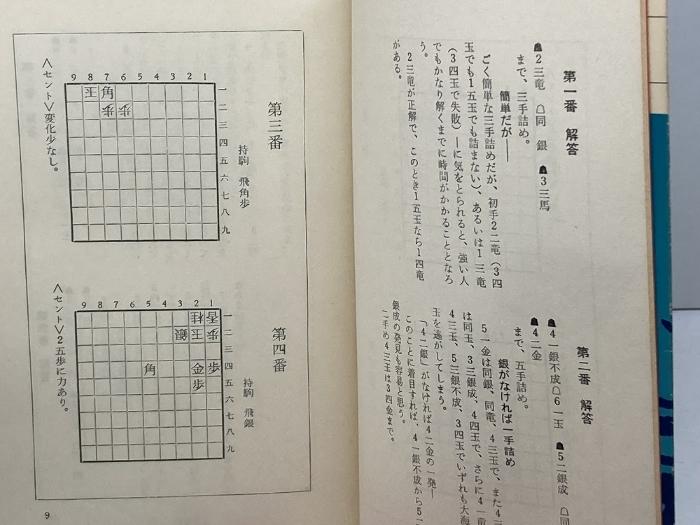 第一番 解答
☗2三竜 ☖同 銀 ☗3三馬
まで、三手詰め。
簡単だが――
ごく簡単な三手詰めだが、初手2二竜(3四
玉でも1五玉でも詰まない)、あるいは1三竜
(3四玉で失敗)―に気をとられると、強い人
でもかなり解くまでに時間がかかることとなろ
う。
2三竜が正解で、このとき1五玉なら1四竜
がある。
第二番 解答
☗4一銀不成☖6一玉 ☗5二銀成 ☖同
☗4二金
まで、五手詰め。
銀がなければ一手詰め
5一金は同銀、同竜、4三玉で、また4三
は同玉、3三銀成、4四玉で、さらに4一竜
4三玉、5三銀不成、3四玉でいずれも大海
玉を逃がしてしまう。
「4二銀」がなければ4二金の一発―
このことに着目すれば、4一銀不成から5二
銀成の発見も容易と思う。
二手め4三玉は3四金まで。
第三番
持駒 飛角歩
9 8 7 6 5 4 3 2 1
一二三四五六七八九
玉 角
歩 歩
〈セント〉変化少なし。
第四番
持駒 飛銀
9 8 7 6 5 4 3 2 1
一二三四五六七八九
桂 香
銀 玉 歩
角 金 歩
歩
〈セント〉2五歩に力あり。
9